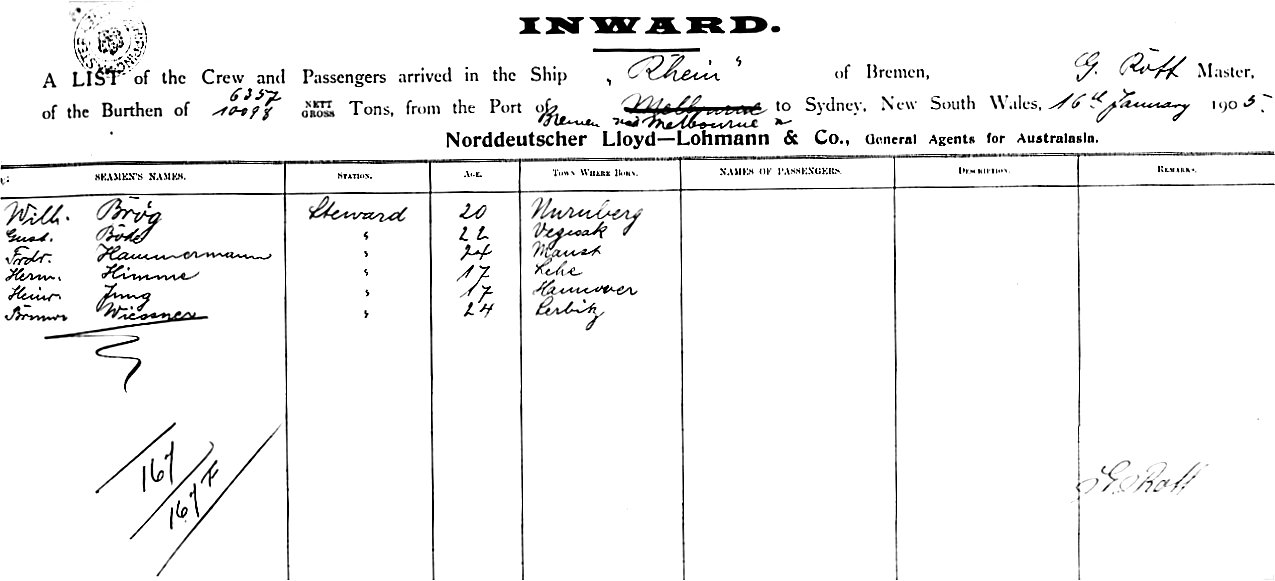 INWARD.
A LIST of the Crew and Passengers arrived in the Ship „Rhein“ of Bremen, G. Rott Master,
of the Burthen of 6357 NETT 10098 GROSS Tons, from the Port of Melbourne to Sydney, New South Wales, 16th January 1905.
Bremen via Melbourne
Norddeutscher Lloyd—Lohmann & Co., General Agents for Australasia.
SEAMEN'S NAMES. STATION. AGE. TOWN WHERE BORN. NAMES OF PASSENGERS. DESCRIPTION. REMARKS.
Wilh. Brög Steward 20 Nurnberg
Gust. Böte " 22 Vegesak
Frdr. Hammermann " 24
Herm. Himme " 17 Lehe
Heinr. Jung " 17 Hannover
Wiessner " 24
167
167 F
G. Rott